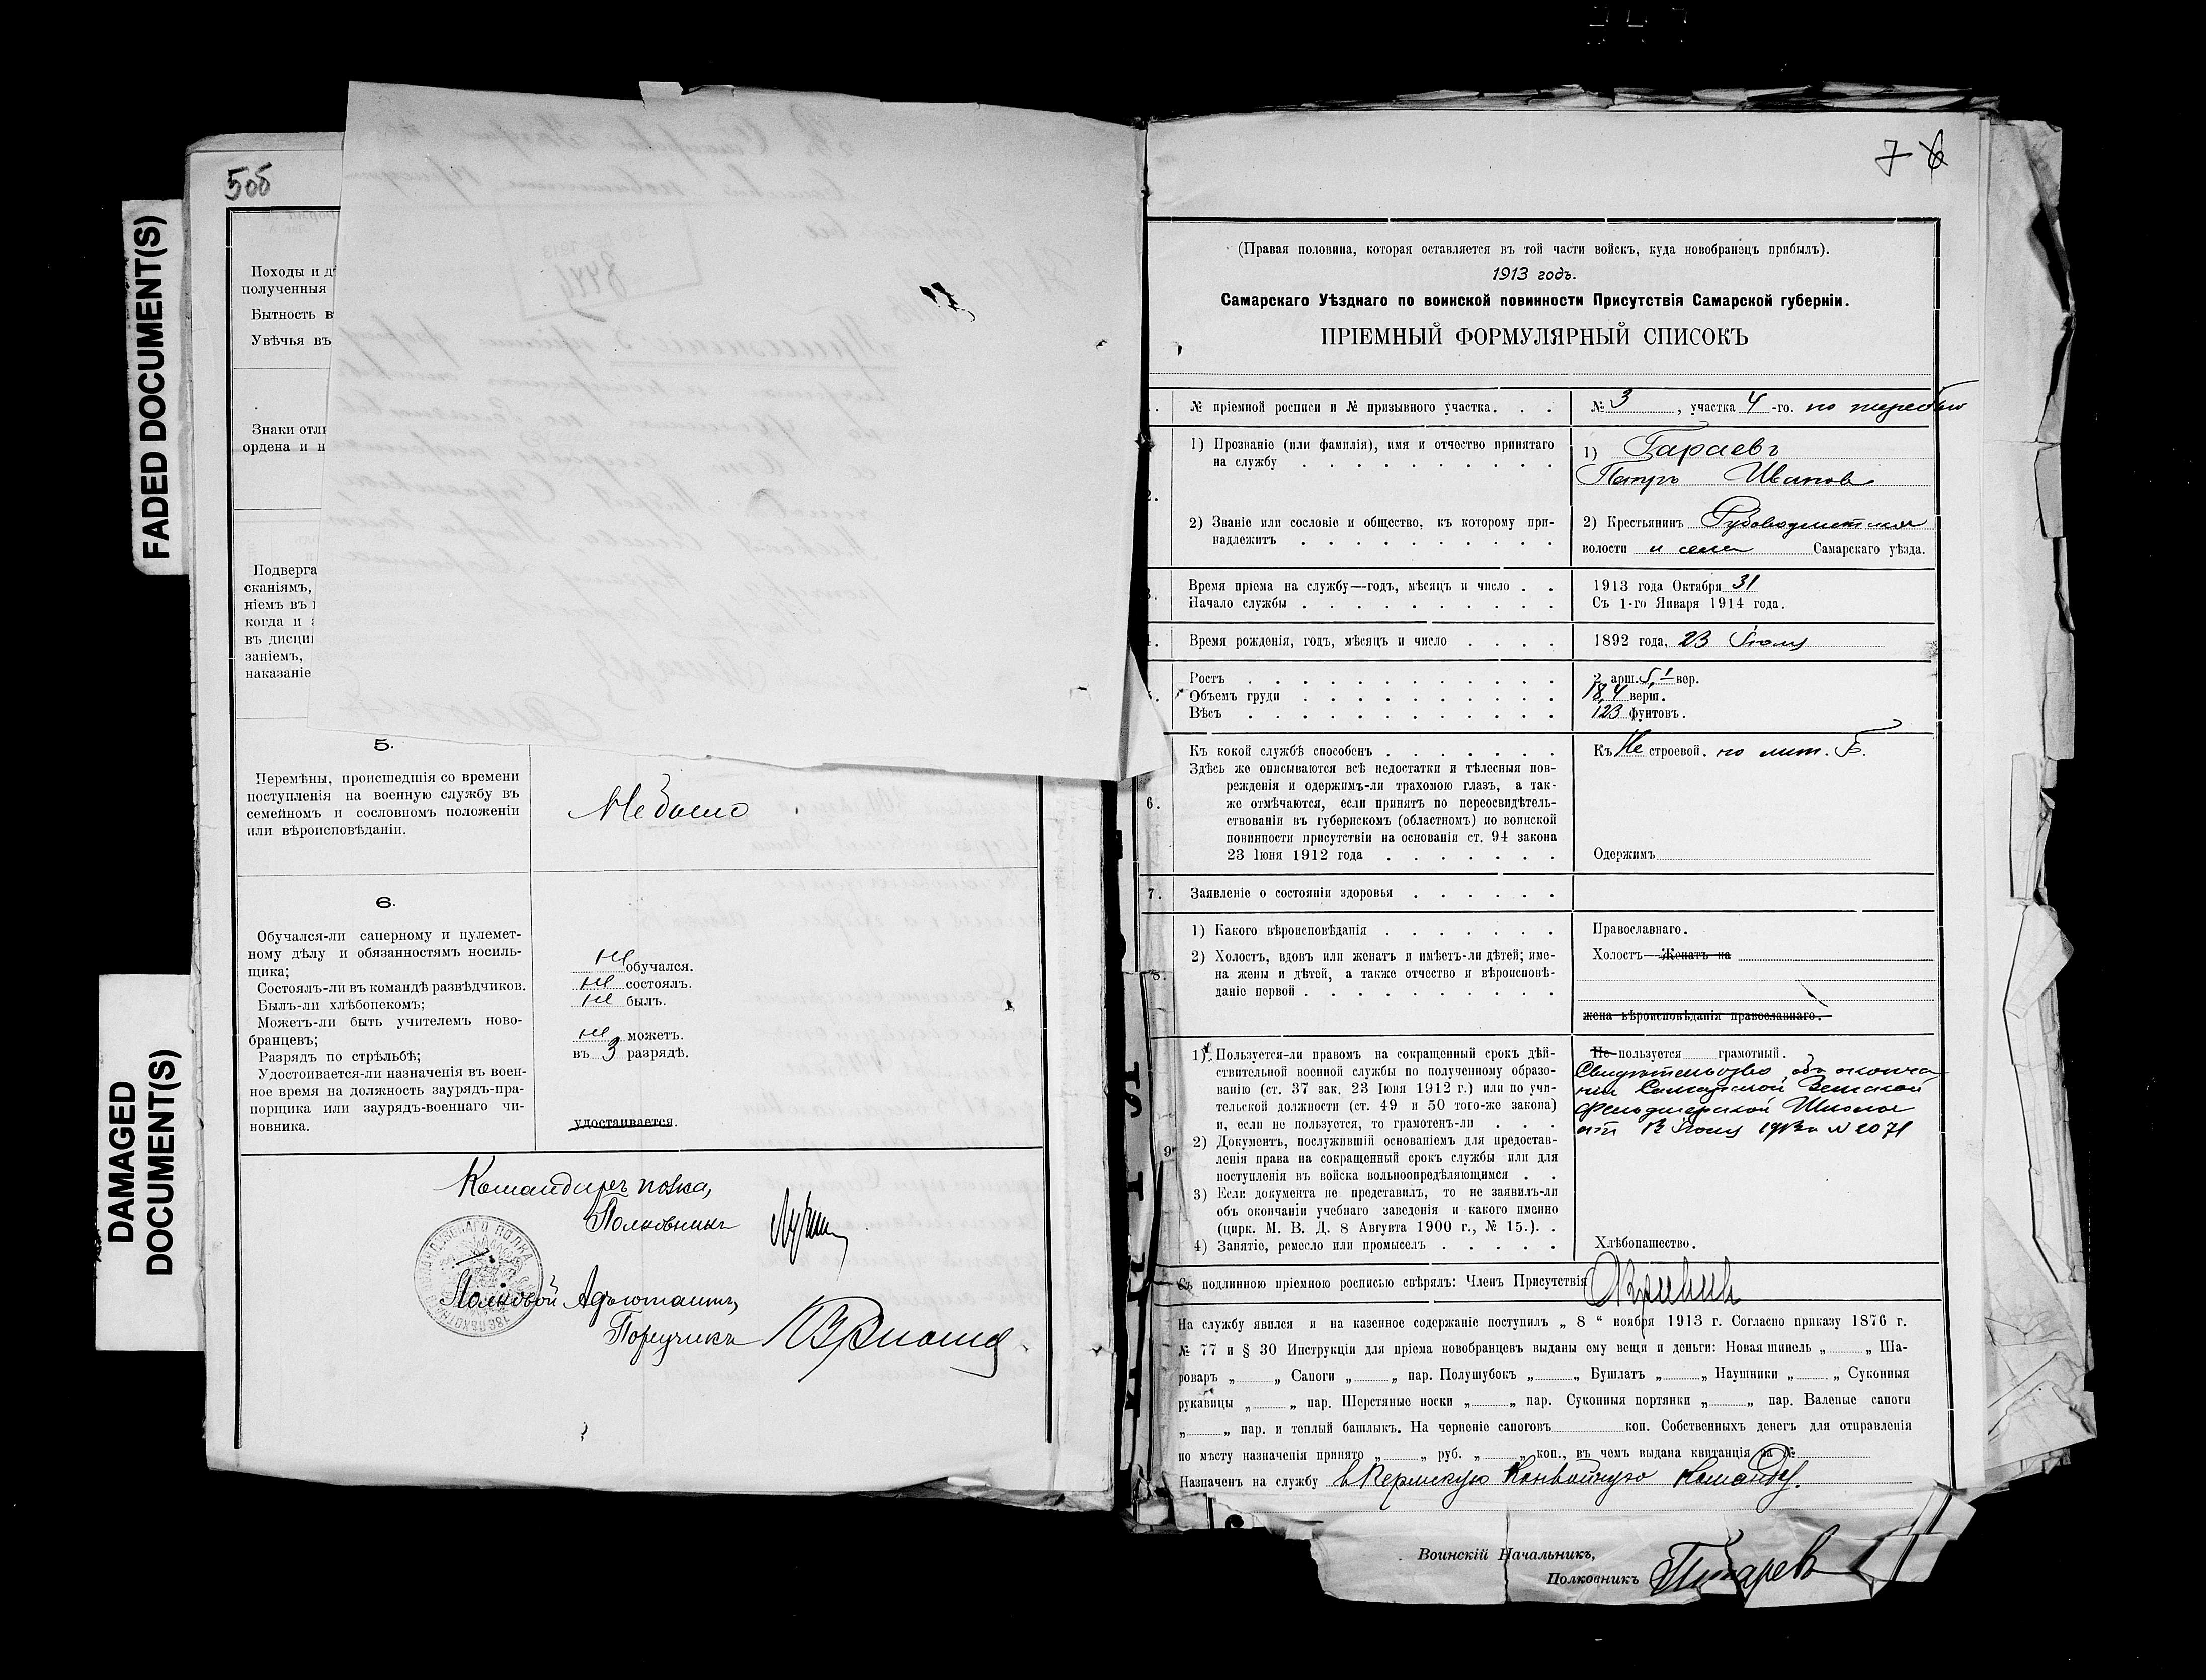 FADED DOCUMENT(S)
DAMAGED
DOCUMENT(S)
5об
Походы и д
полученныя
Бытность в
Увѣчья въ
Знаки отли
ордена и н
Подверга
сканіямъ,
ніемъ въ
когда и
въ дисци
заніемъ,
наказаніе
5.
Перемѣны, происшедшія со времени
поступленія на военную службу въ
семейномъ и сословномъ положеніи
или вѣроисповѣданіи.
Не было
6.
Обучался-ли саперному и пулемет-
ному дѣлу и обязанностямъ носиль-
щика;
не обучался.
Состоялъ-ли въ командѣ развѣдчиковъ.
не состоялъ.
Былъ-ли хлѣбопекомъ;
не былъ.
Можетъ-ли быть учителемъ ново-
бранцевъ;
не можетъ.
Разрядъ по стрѣльбѣ;
въ 3 разрядѣ.
Удостоивается-ли назначенія въ воен-
ное время на должность заурядъ-пра-
порщика или заурядъ-военнаго чи-
новника.
удостаивается.
Командиръ полка,
Полковникъ
Полковой Адъютантъ,
Поручикъ
7 6
(Правая половина, которая оставляется въ той части войскъ, куда новобранецъ прибылъ).
1913 годъ.
Самарскаго Уѣзднаго по воинской повинности Присутствія Самарской губерніи.
ПРІЕМНЫЙ ФОРМУЛЯРНЫЙ СПИСОКЪ
№ пріемной росписи и № призывного участка. . .
№ 3, участка 4-го. по жеребью
1) Прозваніе (или фамилія), имя и отчество принятаго
на службу
1) Гараевъ
Петръ Ивановъ
2) Званіе или сословіе и общество, къ которому при-
надлежитъ
2) Крестьянинъ
волости и села Самарскаго уѣзда.
Время пріема на службу—годъ, мѣсяцъ и число . .
1913 года Октября 31
Начало службы
Съ 1-го Января 1914 года.
Время рожденія, годъ, мѣсяцъ и число
1892 года, 23 Іюня
Ростъ
2 арш. 5, вер.
Объемъ груди
18,4 верш.
Вѣсъ
123 фунтовъ.
6.
Къ какой службѣ способенъ
Къ Не строевой. по лит. Б.
Здѣсь же описываются всѣ недостатки и тѣлесныя пов-
режденія и одержимъ-ли трахомою глазъ, а так-
же отмѣчаются, если принятъ по переосвидѣтель-
ствованіи въ губернскомъ (областномъ) по воинской
повинности присутствіи на основаніи ст. 94 закона
23 Іюня 1912 года
Одержимъ
7.
Заявленіе о состояніи здоровья
8.
1) Какого вѣроисповѣданія
Православнаго.
2) Холостъ, вдовъ или женатъ и имѣетъ-ли дѣтей; име-
на жены и дѣтей, а также отчество и вѣроисповѣ-
даніе первой
Холостъ—Женатъ на
жена вѣроисповѣданія православнаго.
9.
1) Пользуется-ли правомъ на сокращенный срокъ дѣй-
ствительной военной службы по полученному образо-
ванію (ст. 37 зак. 23 Іюня 1912 г.) или по учи-
тельской должности (ст. 49 и 50 того-же закона)
и, если не пользуется, то грамотенъ-ли
Не пользуется грамотный.
Свидѣтельство объ оконча
ніи Самарской Земской
Фельдшерской Школы
отъ 12 Іюня 1913 г № 2071
2) Документъ, послужившій основаніемъ для предостав-
ленія права на сокращенный срокъ службы или для
поступленія въ войска вольноопредѣляющимся
3) Если документа не представилъ, то не заявилъ-ли
объ окончаніи учебнаго заведенія и какого именно
(цирк. М. В. Д. 8 Августа 1900 г., № 15.).
4) Занятіе, ремесло или промыселъ
Хлѣбопашество.
Съ подлинною пріемною росписью свѣрялъ: Членъ Присутствія
На службу явился и на казенное содержаніе поступилъ „ 8 “ ноября 1913 г. Согласно приказу 1876 г.
№ 77 и § 30 Инструкціи для пріема новобранцевъ выданы ему вещи и деньги: Новая шинель „ „ Ша-
роваръ „ „ Сапоги „ „ пар. Полушубокъ „ „ Бушлатъ „ „ Наушники „ „ Суконныя
рукавицы „ „ пар. Шерстяные носки „ „ пар. Суконныя портянки „ „ пар. Валеные сапоги
„ „ пар. и теплый башлыкъ. На черненіе сапоговъ коп. Собственныхъ денегъ для отправленія
по мѣсту назначенія принято „ „ руб. „ „ коп., въ чемъ выдана квитанція за №
Назначенъ на службу в Пермскую Конвойную Команду.
Воинскій Начальникъ,
Полковникъ Писарев